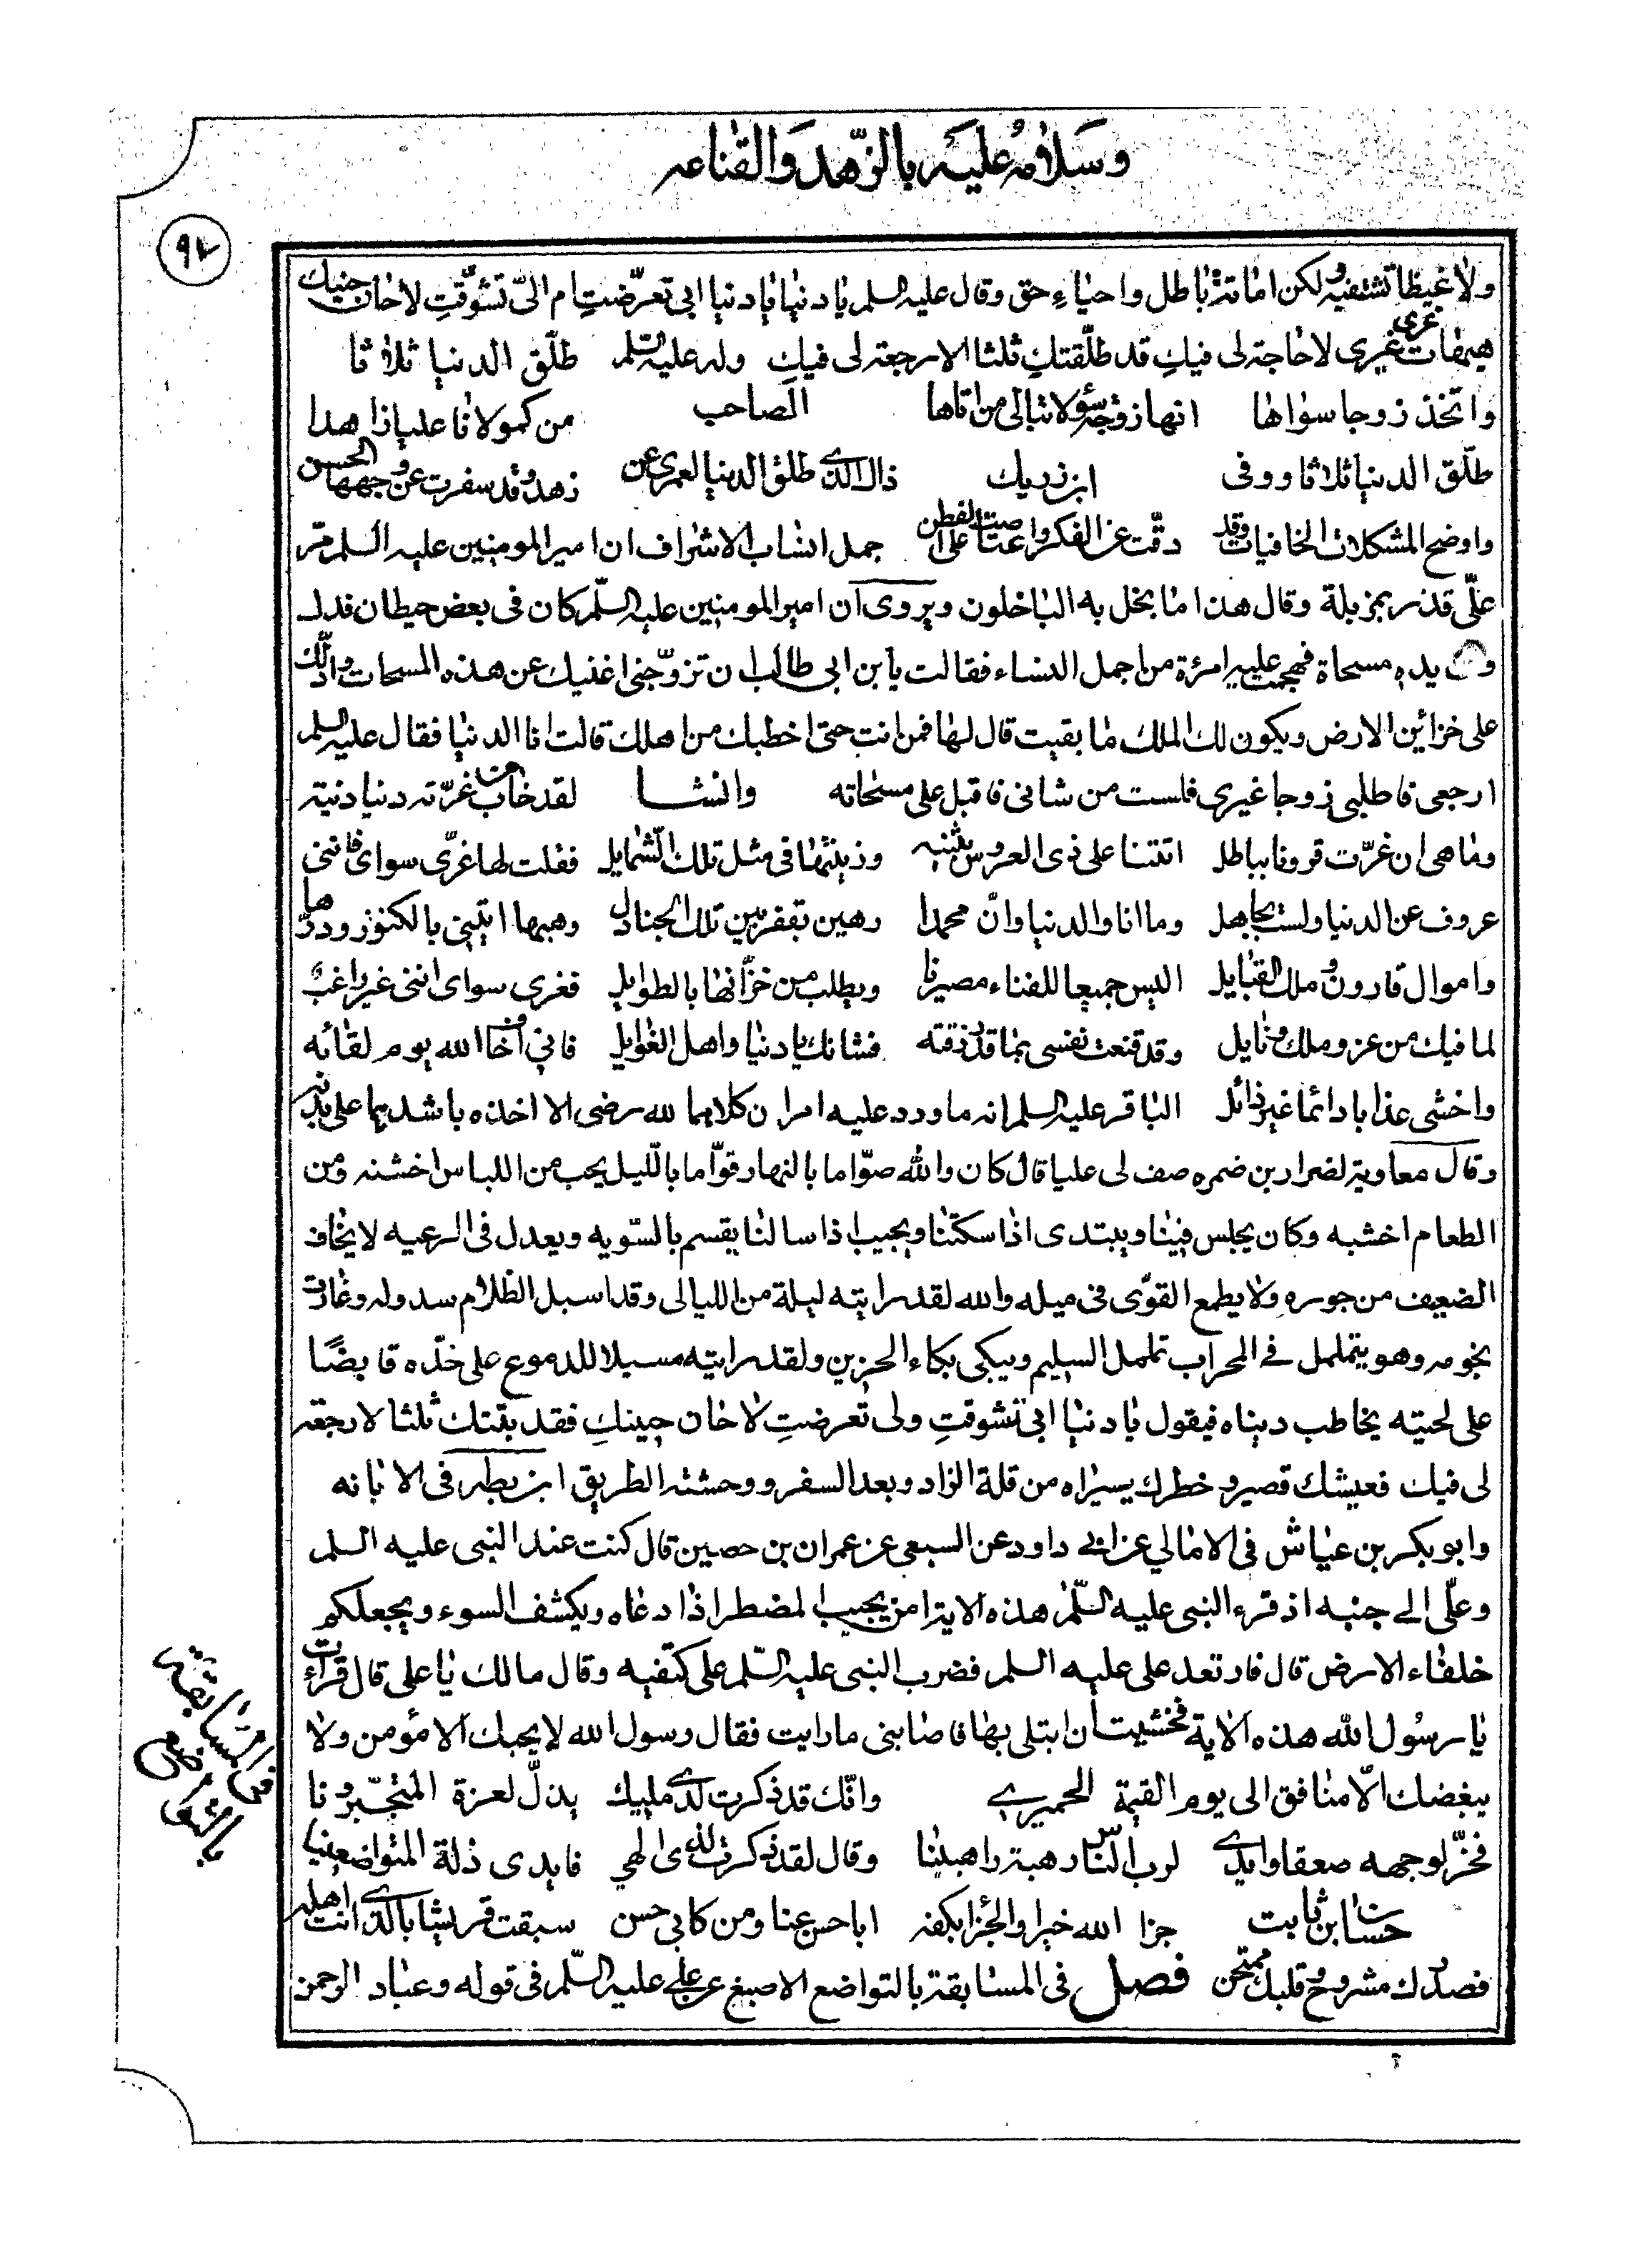 وسلامه عليه بالزهد والقناعه
٩٧
ولا غيظا تشتفيه ولكن اماتة باطل واحياء حق وقال عليه السلم يا دنيا يا دنيا ابي تعرّضتِ ام الىّ تشوّقتِ لا حان حينك
هيهات غرى غيرى لا حاجة لى فيكِ قد طلّقتكِ ثلثا لا رجعة لى فيكِ وله عليه السلم طلّق الدنيا ثلاثا
واتخذ زوجا سواها انها زوجة سؤ لا تبالى من اتاها الصاحب من كمولانا على زاهدا
طلّق الدنيا ثلاثا ووفى ابن رزيك ذاك الذى طلق الدنيا لعمرى عن زهد وقد سفرت عن وجهها الحسن
واوضح المشكلات الخافيات وقد دقّت عن الفكر واعتاصت على الفطن جمل انساب الاشراف ان امير المومنين عليه السلم مرّ
على قذر بمزبلة وقال هذا ما بخل به الباخلون ويروى ان امير المومنين عليه السلم كان فى بعض حيطان فدك
وفى يده مسحاة فهجمت عليه امرئة من اجمل النساء فقالت يا بن ابى طالب ان تزوّجنى اغنيك عن هذه المسحات وادلّك
على خزائين الارض ويكون لك الملك ما بقيت قال لها فمن انت حتى اخطبك من اهلك قالت انا الدنيا فقال عليه السلم
ارجعى فاطلبى زوجا غيرى فلست من شانى فاقبل على مسحاته وانشا لقد خاب من غرّته دنيا دنية
وما هى ان غرّت قرونا بباطل اتتنا على ذى العروس بثنيه وزينتها فى مثل تلك الشمايل فقلت لها غرّى سواى فاننى
عروف عن الدنيا ولست بجاهل وما انا والدنيا وانّ محمدا رهين بقفر بين تلك الجنادل وهبها اتتنى بالكنوز ودرّها
واموال قارون وملك القبايل اليس جميعا للفناء مصيرنا ويطلب من خزّانها بالطوايل فغرى سواى اننى غير راغب
لما فيك من عز وملك ونايل وقد قنعت نفسى بما قد رزقته فشانك يا دنيا واهل الغوايل فانى اخاف الله يوم لقائه
واخشى عذابا دائما غير زائل الباقر عليه السلم انه ما ورد عليه امران كلاهما لله رضى الا اخذه باشدهما على بدنه
وقال معاوية لضرار بن ضمره صف لى عليا قال كان والله صوّاما بالنهار قوّاما بالليل يحب من اللباس اخشنه ومن
الطعام اخشبه وكان يجلس فينا ويبتدى اذا سكتنا ويجيب اذا سالنا يقسم بالسّويه ويعدل فى الرعيه لا يخاف
الضعيف من جوره ولا يطمع القوّى فى ميله والله لقد رايته ليلة من الليالى وقد اسبل الظلام سدوله وغارت
نجومه وهو يتململ فى المحراب تململ السليم ويبكى بكاء الحزين ولقد رايته مسبلا للدموع على خدّه قابضًا
على لحيته يخاطب دنياه فيقول يا دنيا ابى تشوقتِ ولى تعرضتِ لا حان حينكِ فقد بتتك ثلثا لا رجعة
لى فيك فعيشك قصير وخطرك يسير اه من قلة الزاد وبعد السفر ووحشة الطريق ابن بطه فى الابانه
وابو بكر بن عياش فى الامالي عن ابى داود عن السبعى عن عمران بن حصين قال كنت عند النبى عليه السلم
وعلّى الى جنبه اذ قرء النبى عليه السّلم هذه الاية امن يجيب المضطر اذا دعاه ويكشف السوء ويجعلكم
خلفاء الارض قال فارتعد على عليه السلم فضرب النبى عليه السّلم على كتفيه وقال مالك يا على قال قرات
يا رسول الله هذه الاية فخشيت ان ابتلى بها فاصابنى ما رايت فقال رسول الله لا يحبك الا مؤمن ولا
يبغضك الّا منافق الى يوم القيمة الحميرى وانّك قد ذكرت لدى مليك يذلّ لعزة المتجبّرونا
فخرّ لوجهه صعقا وابدى لرب الناس رهبة راهبينا وقال لقد ذكرت لدى الهي فابدى ذلة المتواضعينا
حسان بن ثابت جزا الله خيرا والجزا بكفه ابا حسن عنا ومن كابى حسن سبقت قريشا بالذى انت اهله
فصدرك مشروح وقلبك ممتحن فصل فى المسابقة بالتواضع الاصبغ عن على عليه السّلم فى قوله وعباد الرحمن
فى المسابقة
بالتواضع